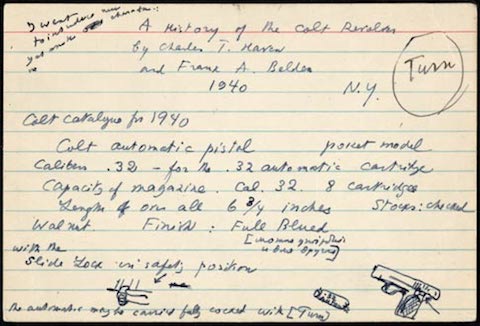 I want
to introduce
A History of the Colt Revolver
by Charles T. Haven
and Frank A. Belden
1940
N.Y.
Turn
Colt catalogue for 1940
Colt automatic pistol pocket model
Caliber .32 – for the .32 automatic cartridge
Capacity of magazine. Cal. 32. 8 cartridges
Length of over all 6 3/4 inches Stocks: checked
Walnut Finish: Full Blued
with the
Slide Lock in safety position
the automatic may be carried fully cocked with [Turn]